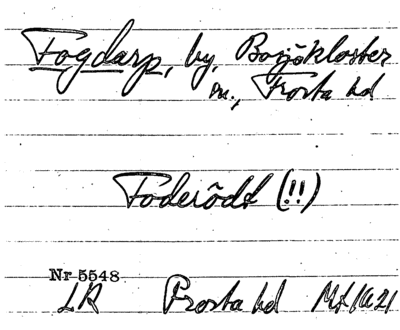 Fogdarp, by, Bosjökloster
sn., Frosta hd
Foderödt (!!)
Nr 5548
LR Frosta hd